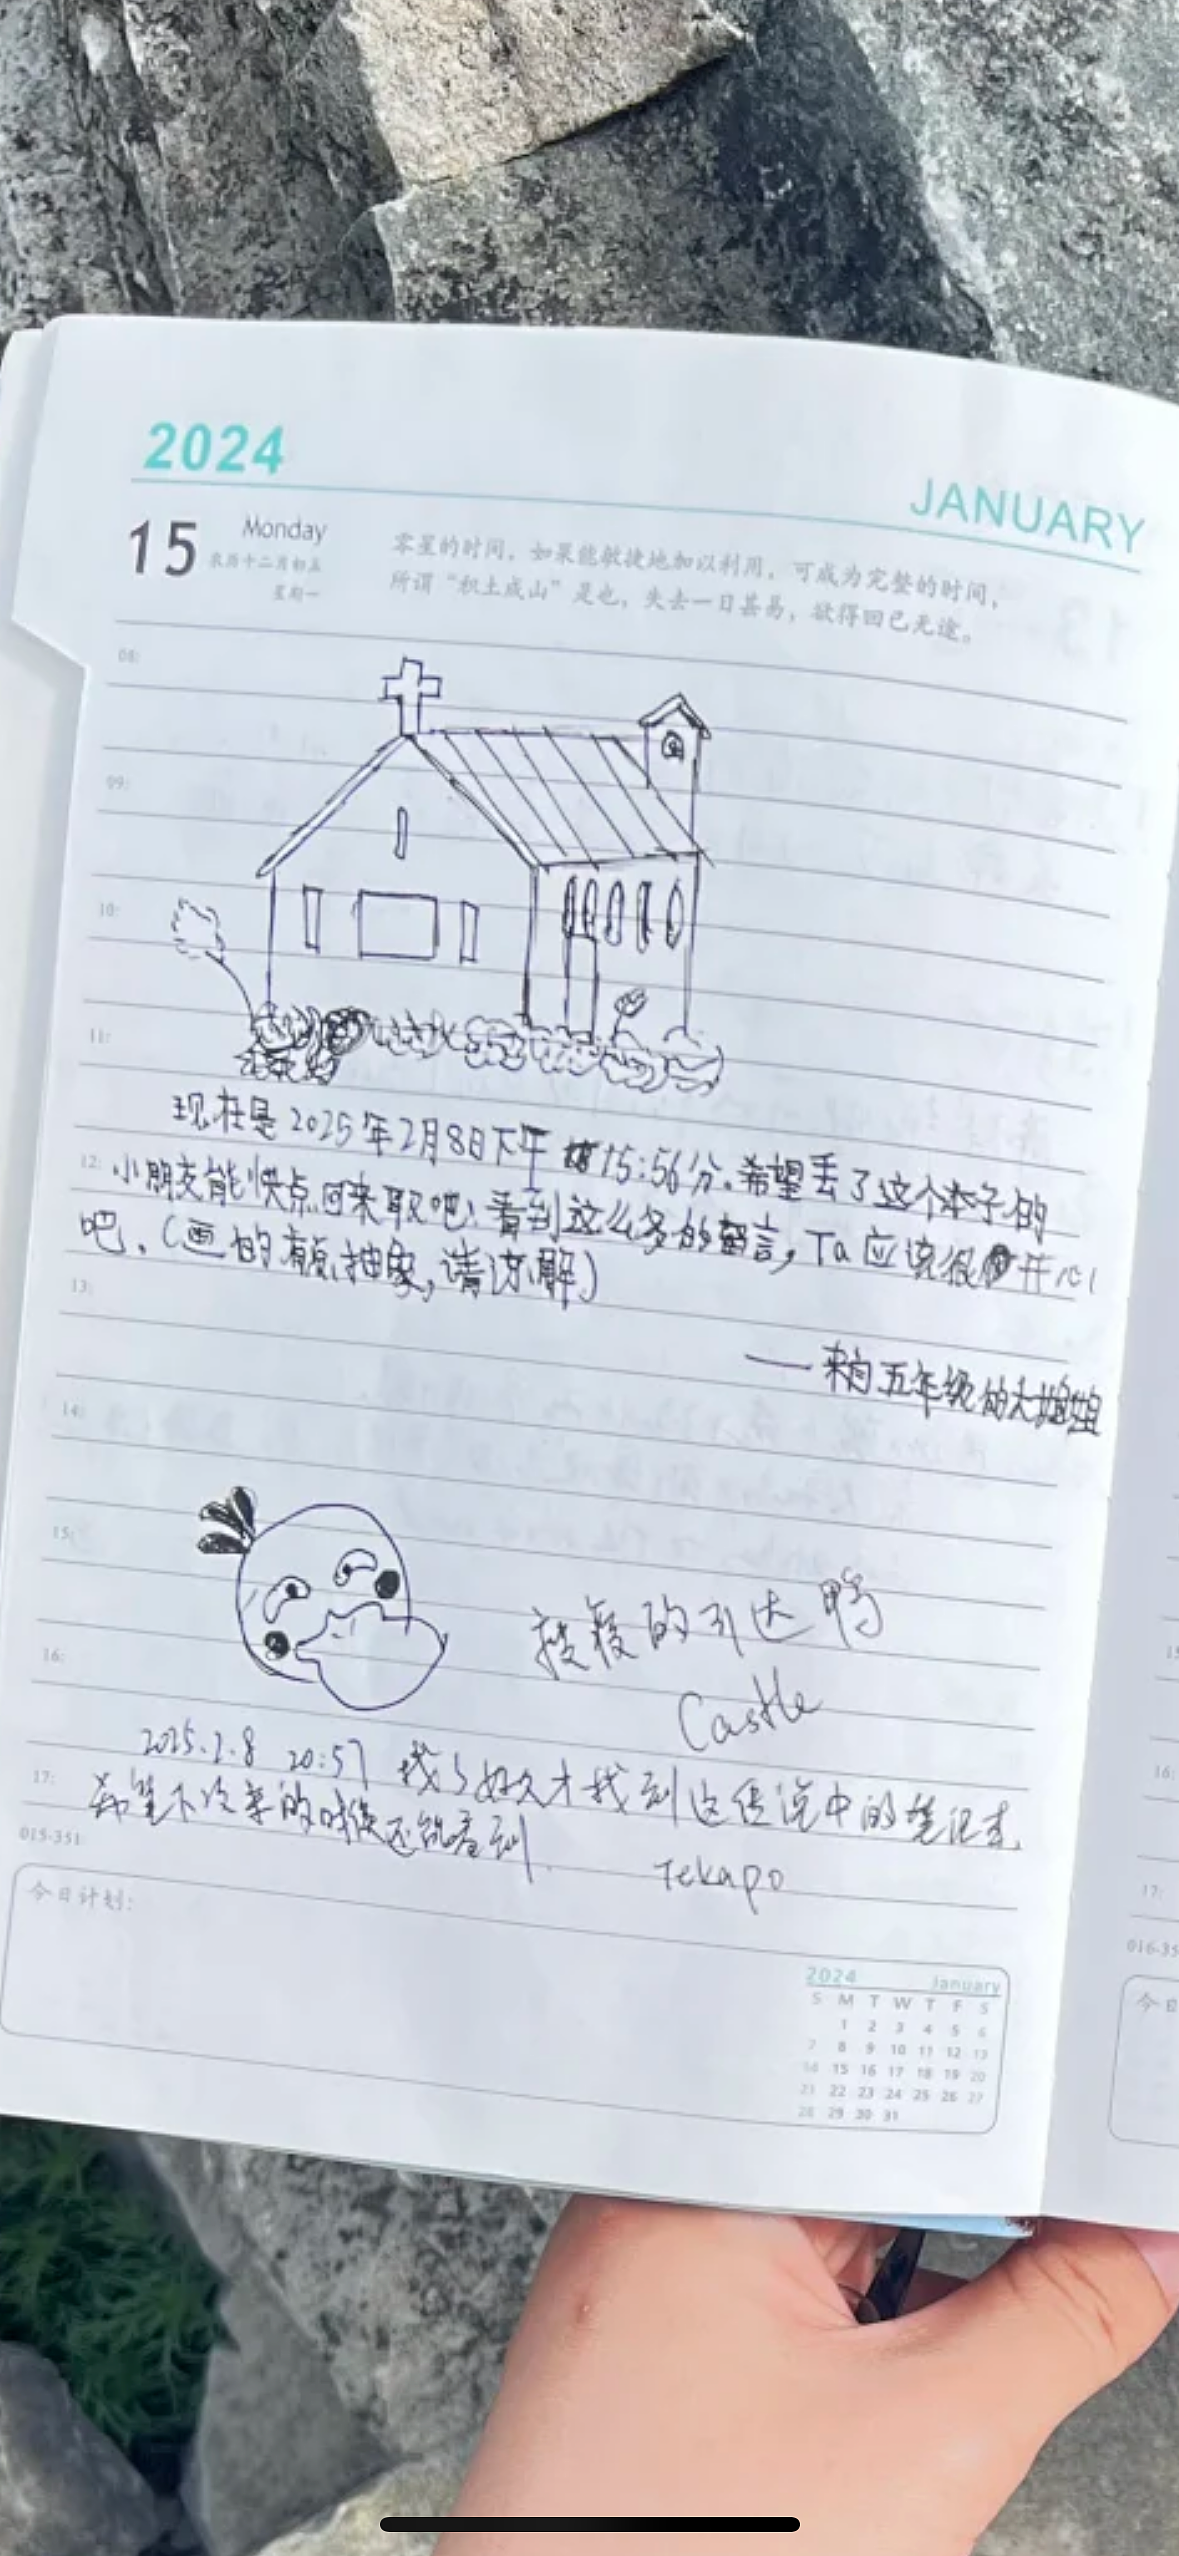 2024
JANUARY
15 Monday
农历十二月初五
星期一
零星的时间，如果能敏捷地加以利用，可成为完整的时间，
所谓“积土成山”是也，失去一日甚易，欲得回已无途。
08:
09:
10:
11:
现在是2025年2月8日下午15:56分.希望丢了这个本子的
12:
小朋友能快点回来取吧!看到这么多的留言，Ta应该很开心
吧.(画的有点抽象,请谅解)
13:
——来自五年级的大姐姐
14:
15:
的引达鸭
Castle
16:
2025.2.8 20:57 找了好久才找到这传说中的笔记本.
17:
希望下次来的时候还能看到. Tekapo
015-351
今日计划:
2024 January
S M T W T F S
1 2 3 4 5 6
7 8 9 10 11 12 13
14 15 16 17 18 19 20
21 22 23 24 25 26 27
28 29 30 31
16:
17:
今日